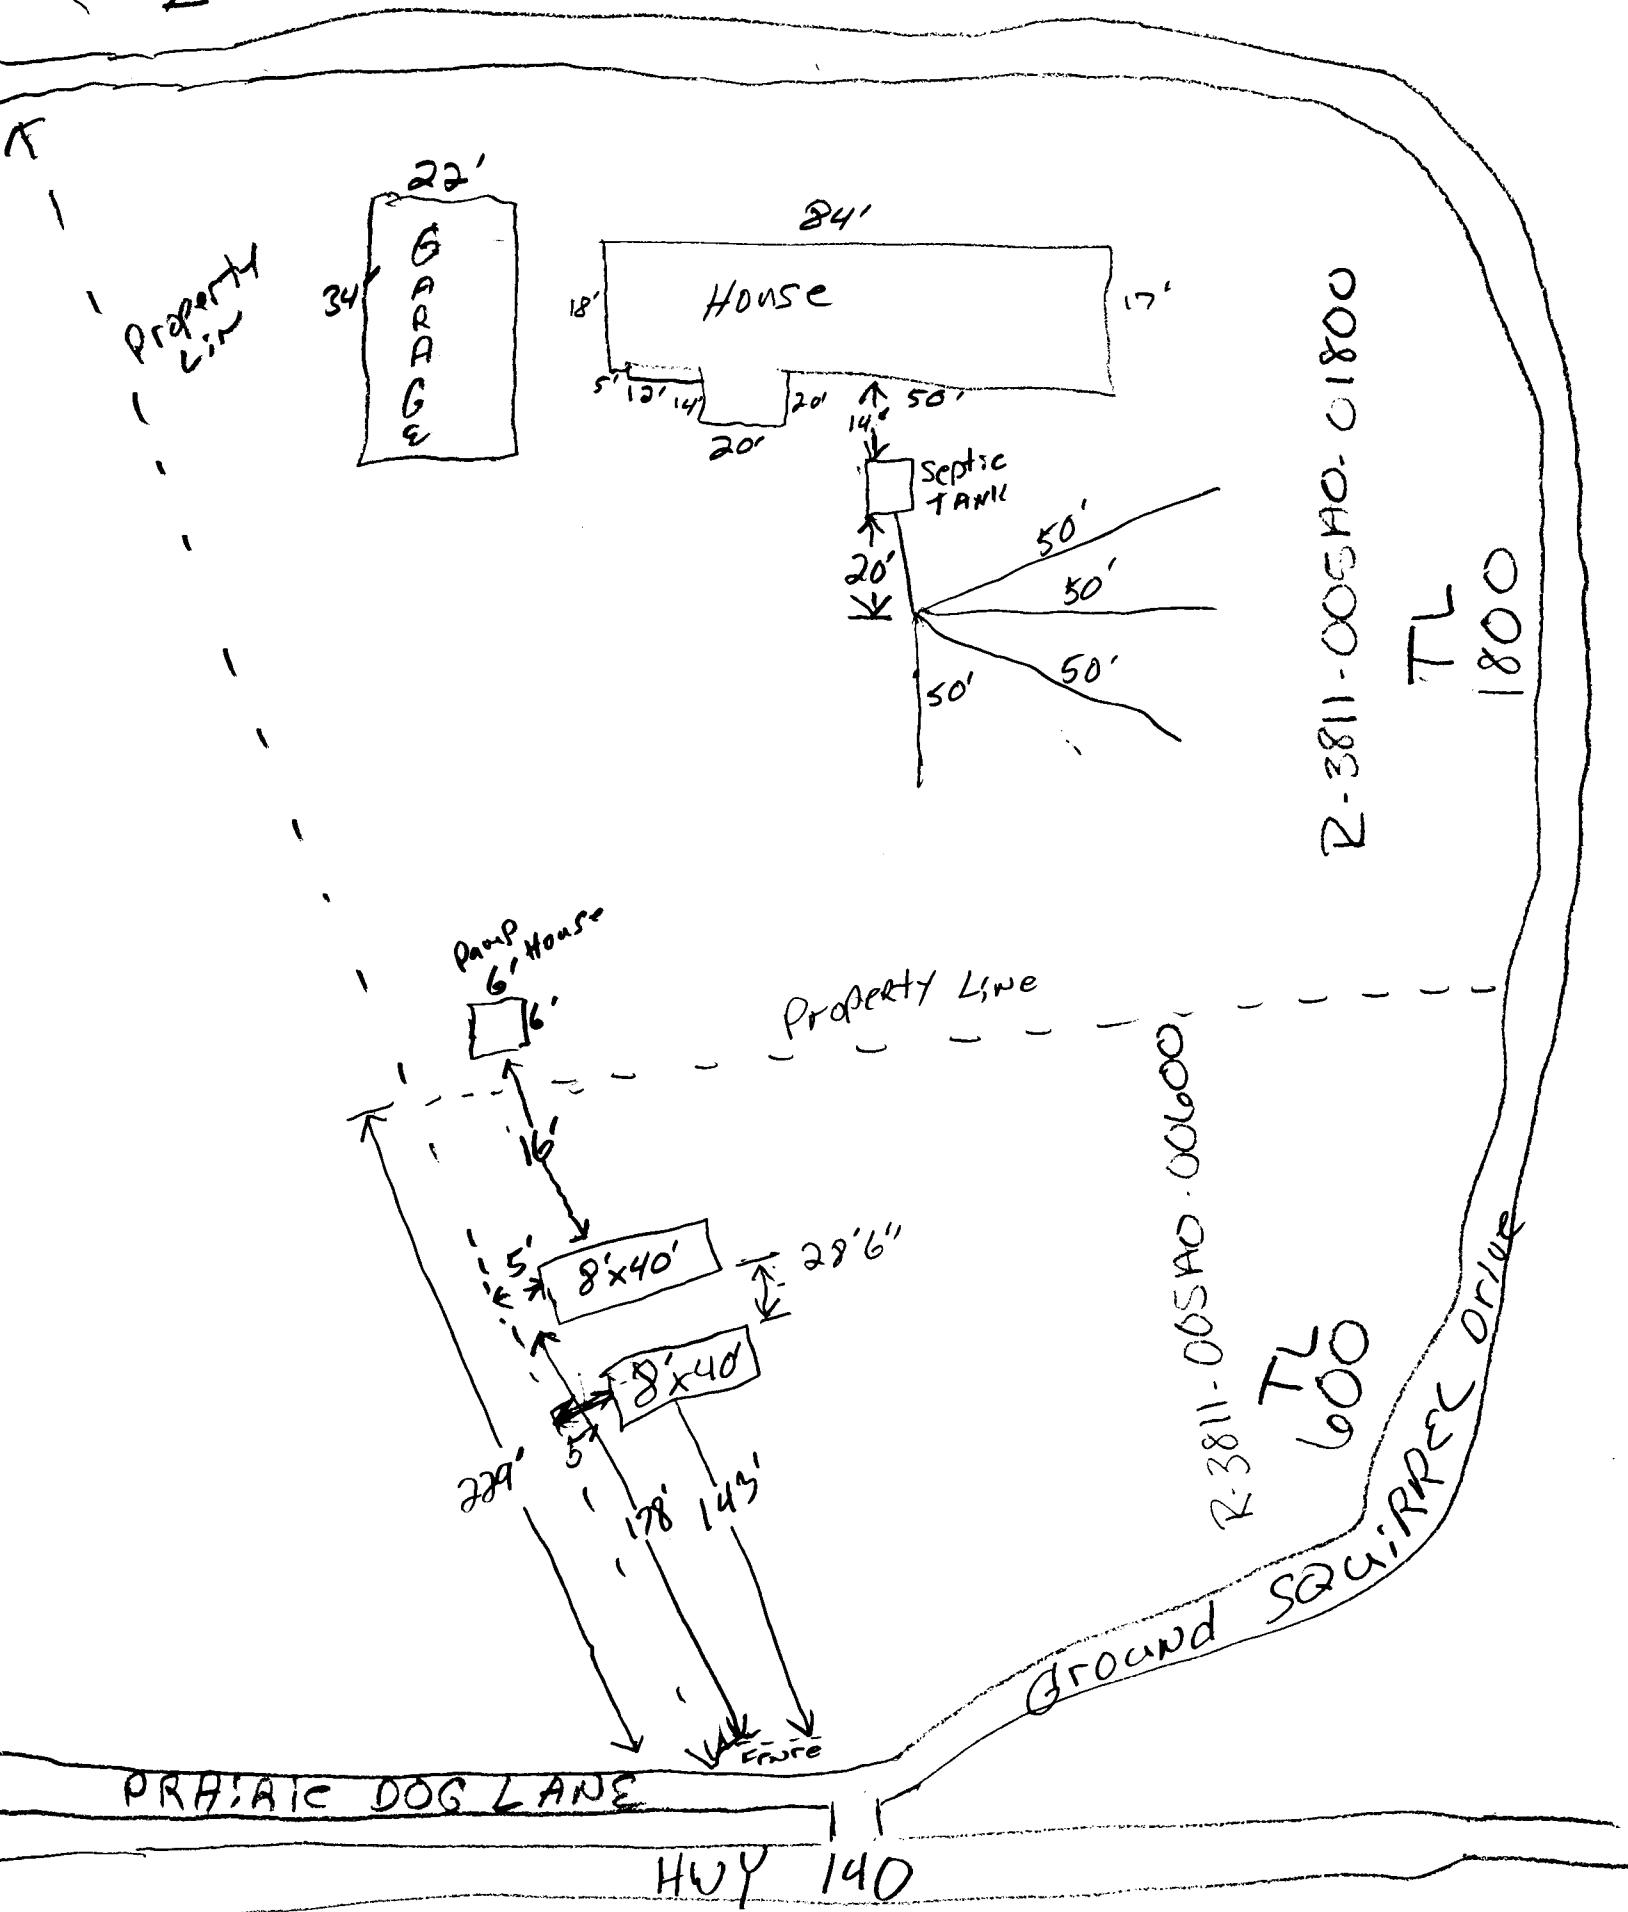 22'
GARAGE
34'
Property
Lin
84'
House
18'
17'
5'
12'
14'
20'
20'
50'
14'
Septic
TANK
20'
50'
50'
50'
50'
R-3811-005A0-01800
TL
1800
Pump House
6'
6'
Property Line
16'
5'
8'x40'
28'6"
8'x40'
5'
229'
178'
143'
R-3811-005A0-00600
TL
600
Ground SQUiRREL Drive
Fence
PRAiRIE DOG LANE
HWY 140